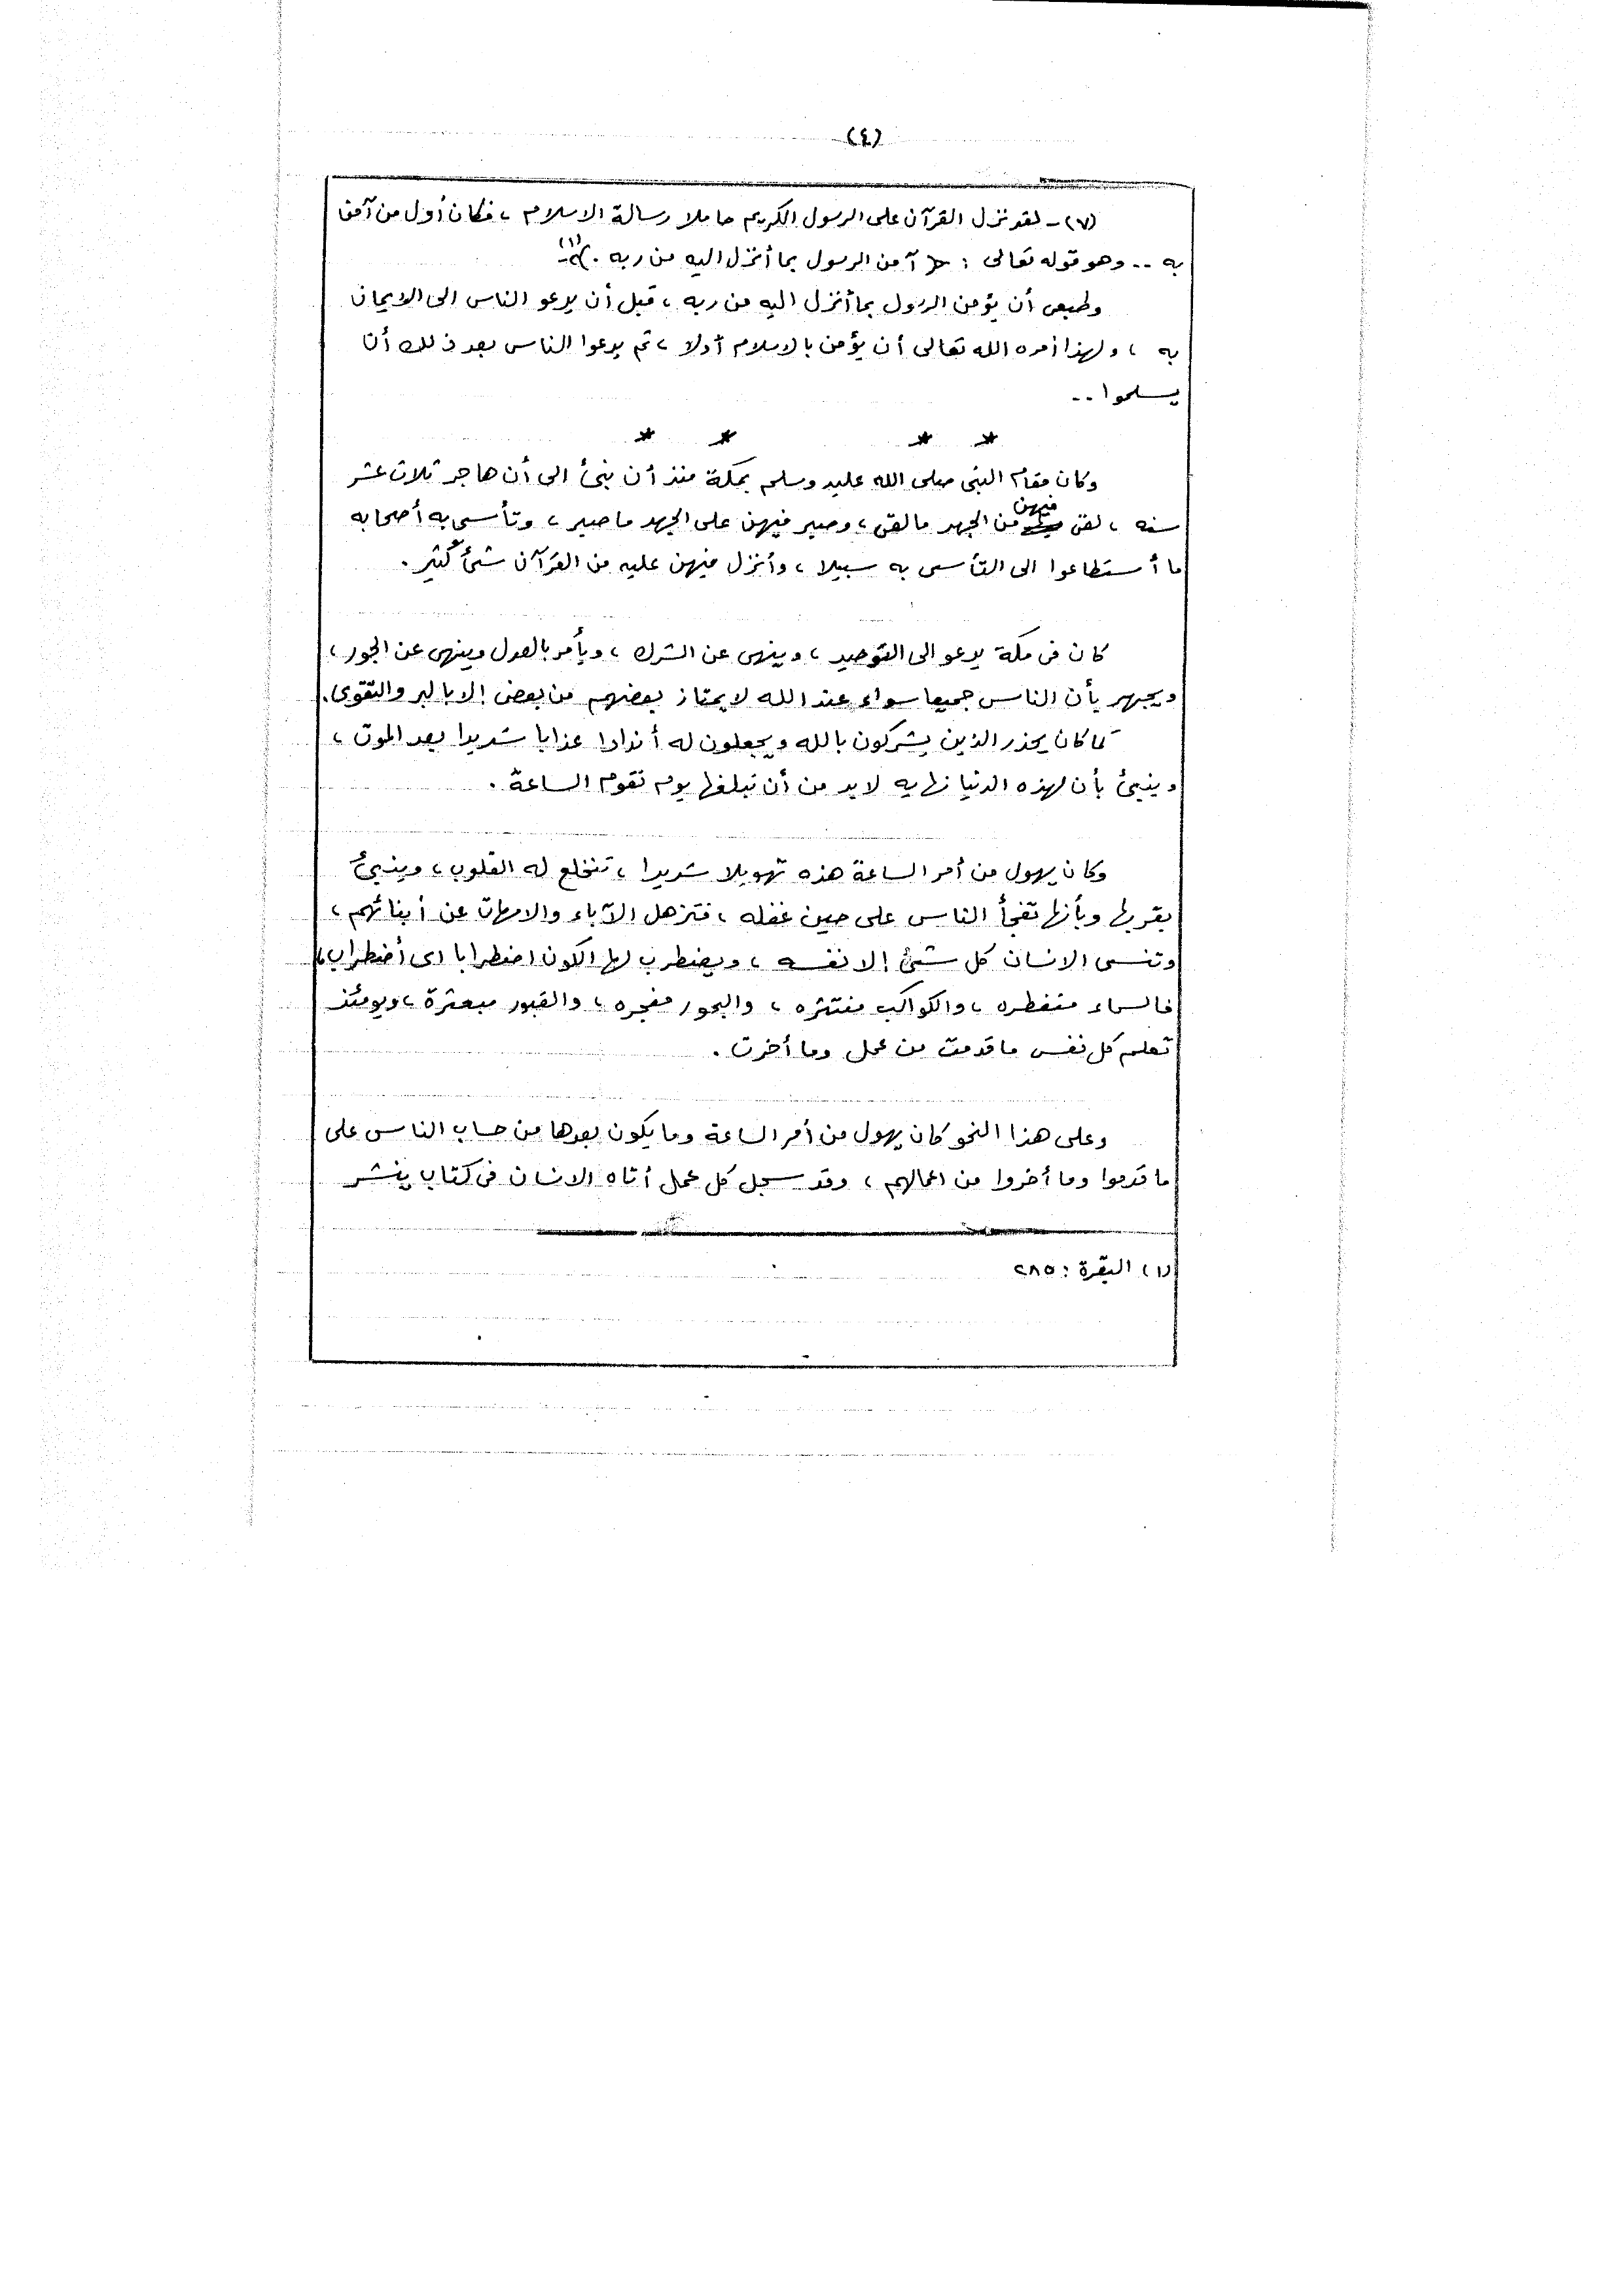 (٤)
(٧) - لقد نزل القرآن على الرسول الكريم حاملا رسالة الاسلام ، فكان أول من آمن
به .. وهو قوله تعالى : ﴿ آمن الرسول بما أنزل اليه من ربه . ﴾ (١)
وطبعى أن يؤمن الرسول بما أنزل اليه من ربه ، قبل أن يدعو الناس الى الايمان
به ، ولهذا أمره الله تعالى أن يؤمن بالاسلام أولا ، ثم يدعوا الناس بعد ذلك أن
يسلموا ..
* * * *
وكان مقام النبى صلى الله عليه وسلم بمكة منذ أن نبئ الى أن هاجر ثلاث عشر
سنه ، لقى فيهن من الجهد ما لقى ، وصبر فيهن على الجهد ما صبر ، وتأسى به أصحابه
ما أستطاعوا الى التأسى به سبيلا ، وأنزل فيهن عليه من القرآن شئ كثير .
كان فى مكة يدعو الى التوحيد ، وينهى عن الشرك ، ويأمر بالعدل وينهى عن الجور ،
ويجهر بأن الناس جميعا سواء عند الله لا يمتاز بعضهم من بعض إلا بالبر والتقوى .
كما كان يحذر الذين يشركون بالله ويجعلون له أندادا عذابا شديدا بعد الموت ،
وينبئ بأن لهذه الدنيا نهايه لابد من أن تبلغها يوم تقوم الساعة .
وكان يهول من أمر الساعة هذه تهويلا شديدا ، تنخلع له القلوب ، وينبئ
بقربها وبأنها تفجأ الناس على حين غفله ، فتذهل الآباء والامهات عن أبنائهم ،
وتنسى الانسان كل شئ إلا نفسه ، ويضطرب لها الكون اضطرابا اى أضطراب ،
فالسماء منفطره ، والكواكب منتثره ، والبحور مفجره ، والقبور مبعثرة ، ويومئذ
تعلم كل نفس ما قدمت من عمل وما أخرت .
وعلى هذا النحو كان يهول من أمر الساعة وما يكون بعدها من حساب الناس على
ما قدموا وما أخروا من اعمالهم ، وقد سجل كل عمل أتاه الانسان فى كتاب ينشر
(١) البقرة : ٢٨٥